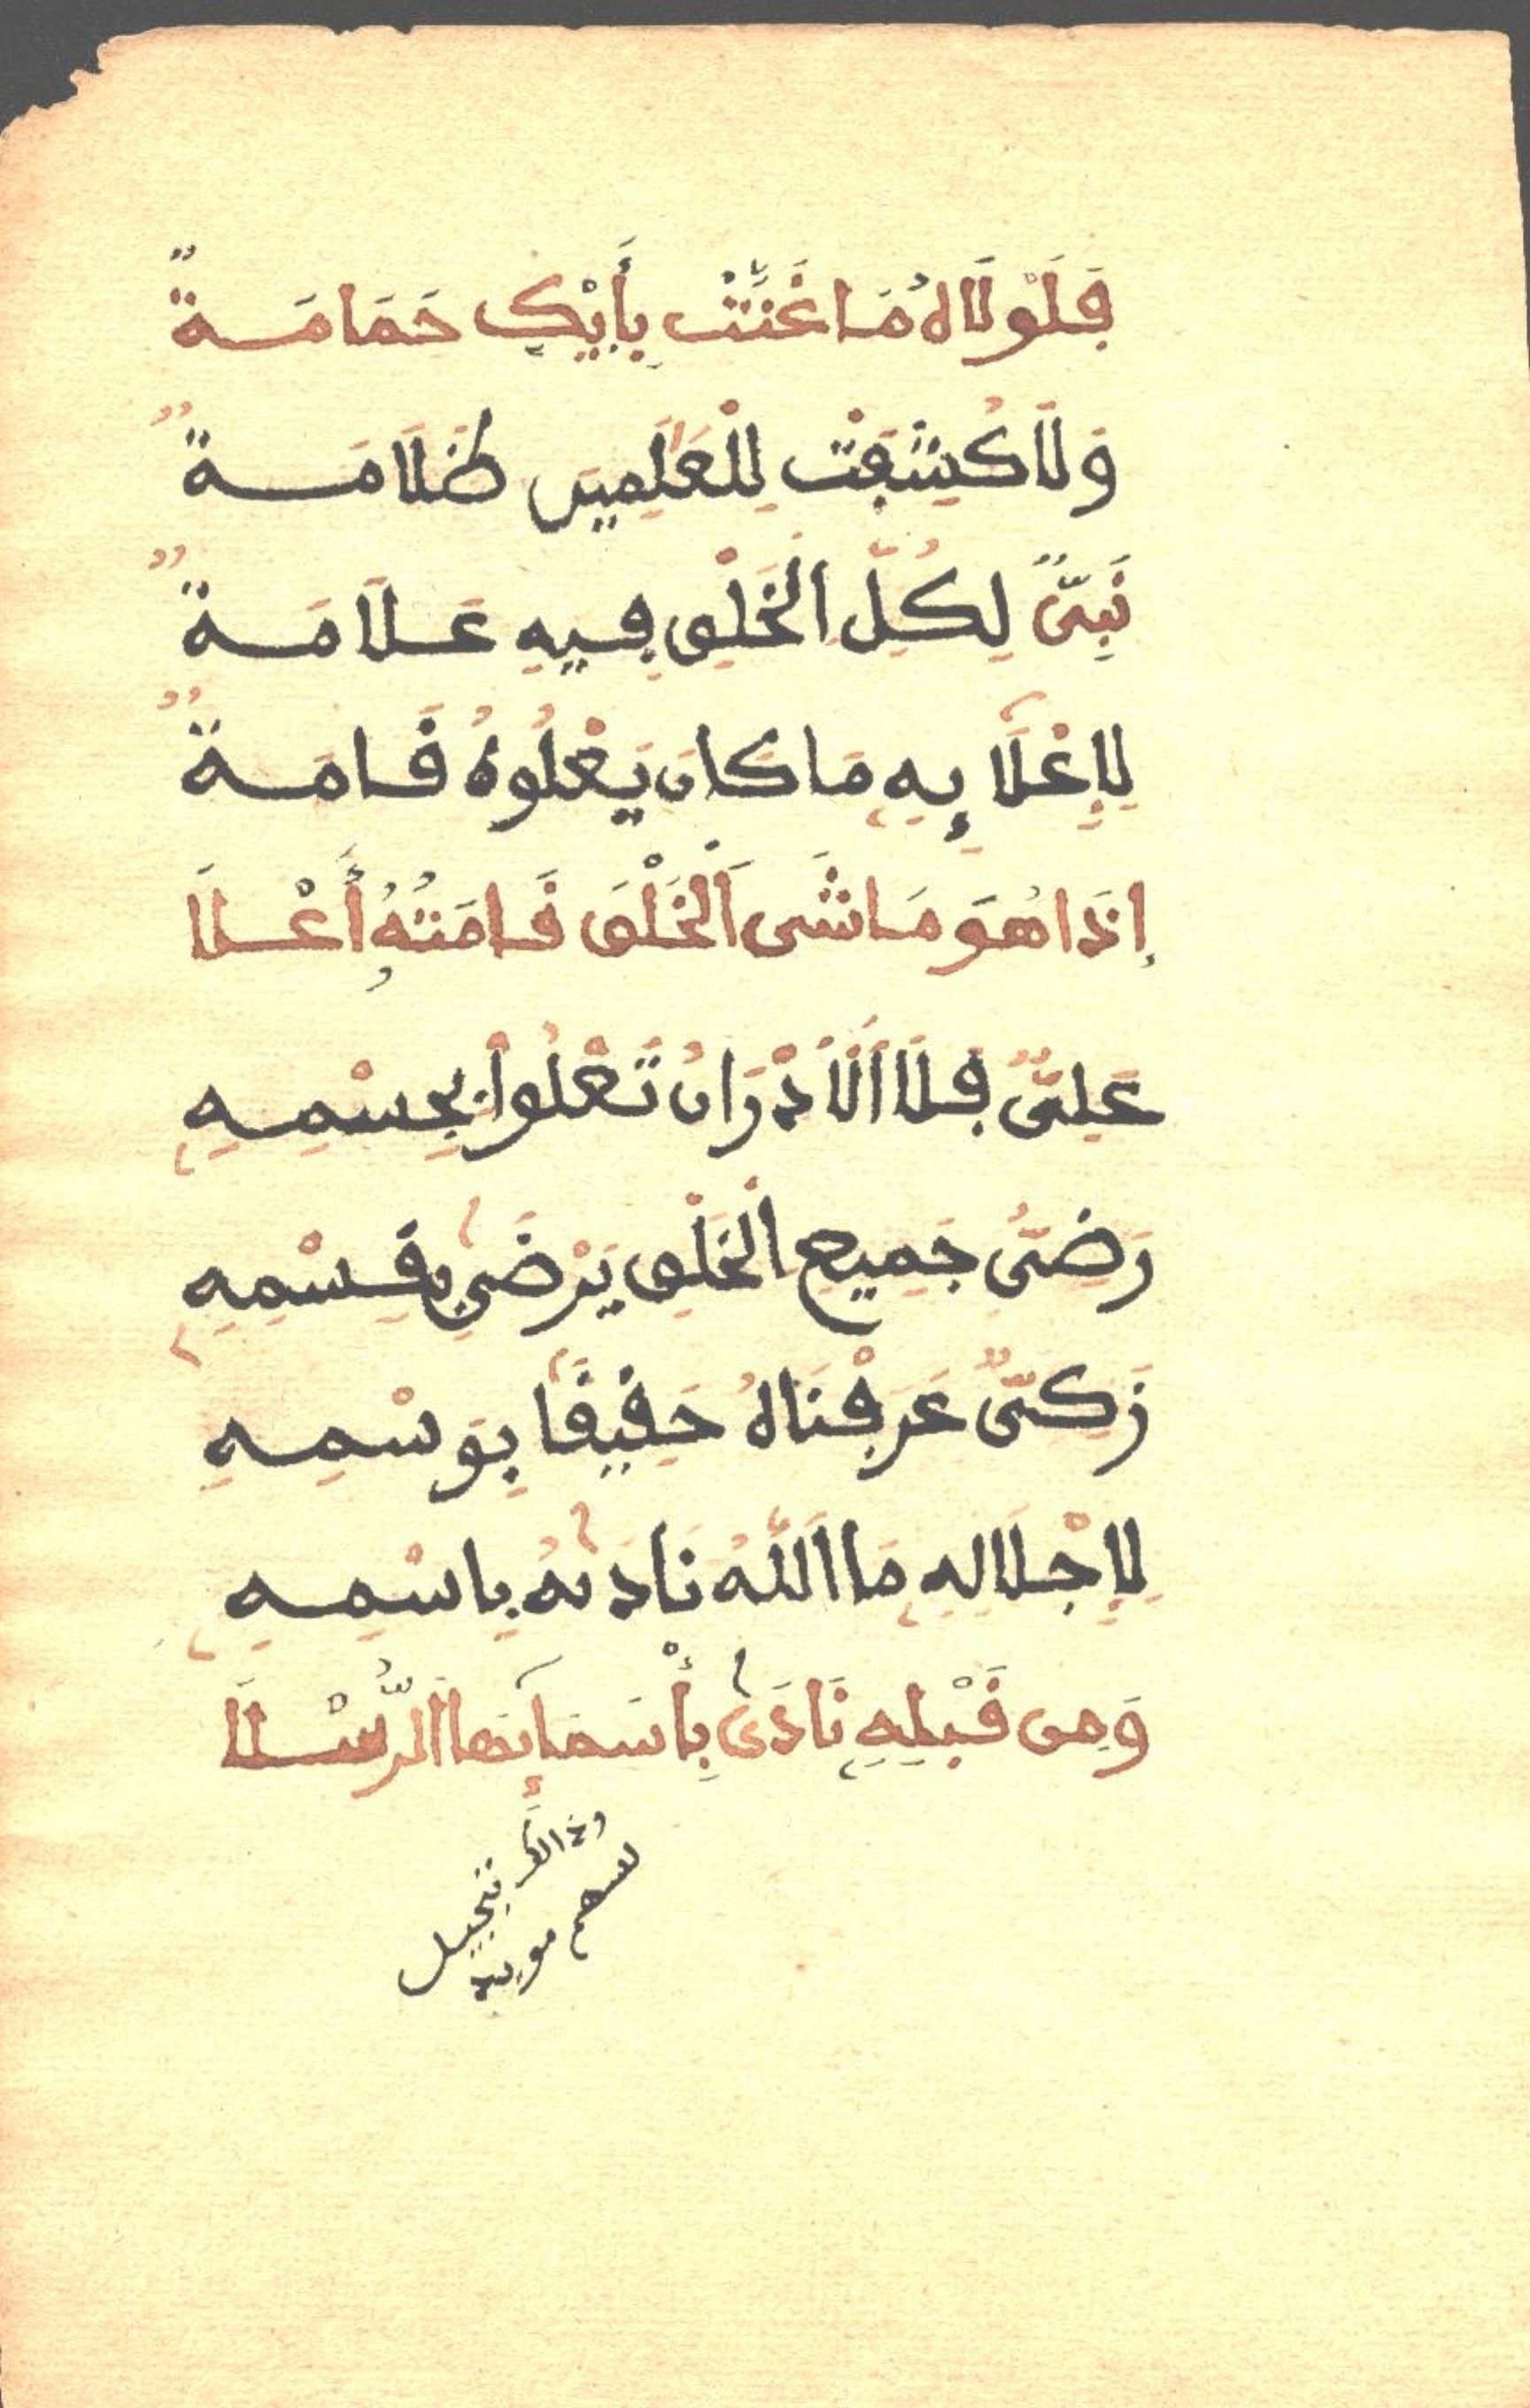 فَلَوْلَاهُ مَا غَنَّتْ بِأَيْكٍ حَمَامَةٌ
وَلَا كُشِفَتْ لِلْعَٰلَمِينَ ظَلَامَةٌ
نَبِىٌّ لِكُلِّ الْخَلْقِ فِيهِ عَلَامَةٌ
لِإِعْلَائِهِ مَا كَانَ يَعْلُوهُ قَامَةٌ
إِذَا هُوَ مَاشَى الْخَلْقَ قَامَتُهُ أَعْلَا
عَلِىٌّ فَلَا الْأَدْرَانُ تَعْلُوا بِجِسْمِهِ
رَضِىُّ جَمِيعِ الْخَلْقِ يَرْضَىٰ بِقِسْمِهِ
زَكِىٌّ عَرَفْنَاهُ حَقِيقًا بِوَسْمِهِ
لِإِجْلَالِهِ مَا اللَّهُ نَادَىٰهُ بِاسْمِهِ
وَمِن قَبْلِهِ نَادَىٰ بِأَسْمَائِهَا الرُّسْلَا